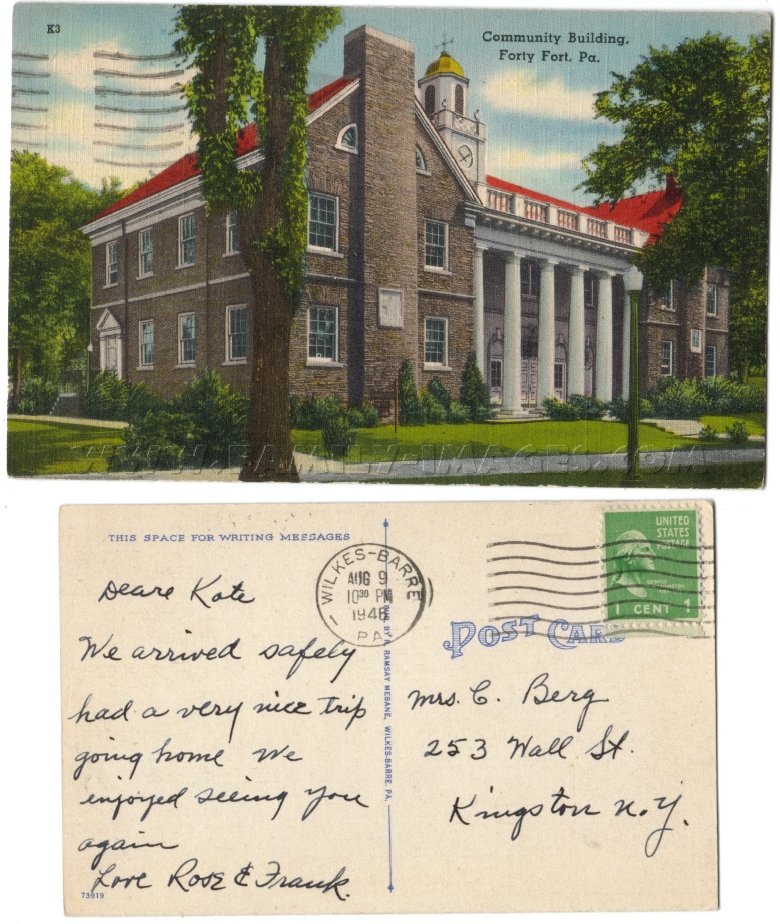 K3
Community Building,
Forty Fort, Pa.
WWW.FAMILY-IMAGES.COM
THIS SPACE FOR WRITING MESSAGES
Deare Kate
We arrived safely
had a very nice trip
going home We
enjoyed seeing you
again
Love Rose & Frank.
73919
WILKES-BARRE
AUG 9
10 30 PM
1946
PA
PUB. BY R. RAMSAY MEBANE, WILKES-BARRE, PA.
UNITED
STATES
POSTAGE
GEORGE
WASHINGTON
1 CENT 1
POST CARD
Mrs. C. Berg
253 Wall St.
Kingston N.Y.